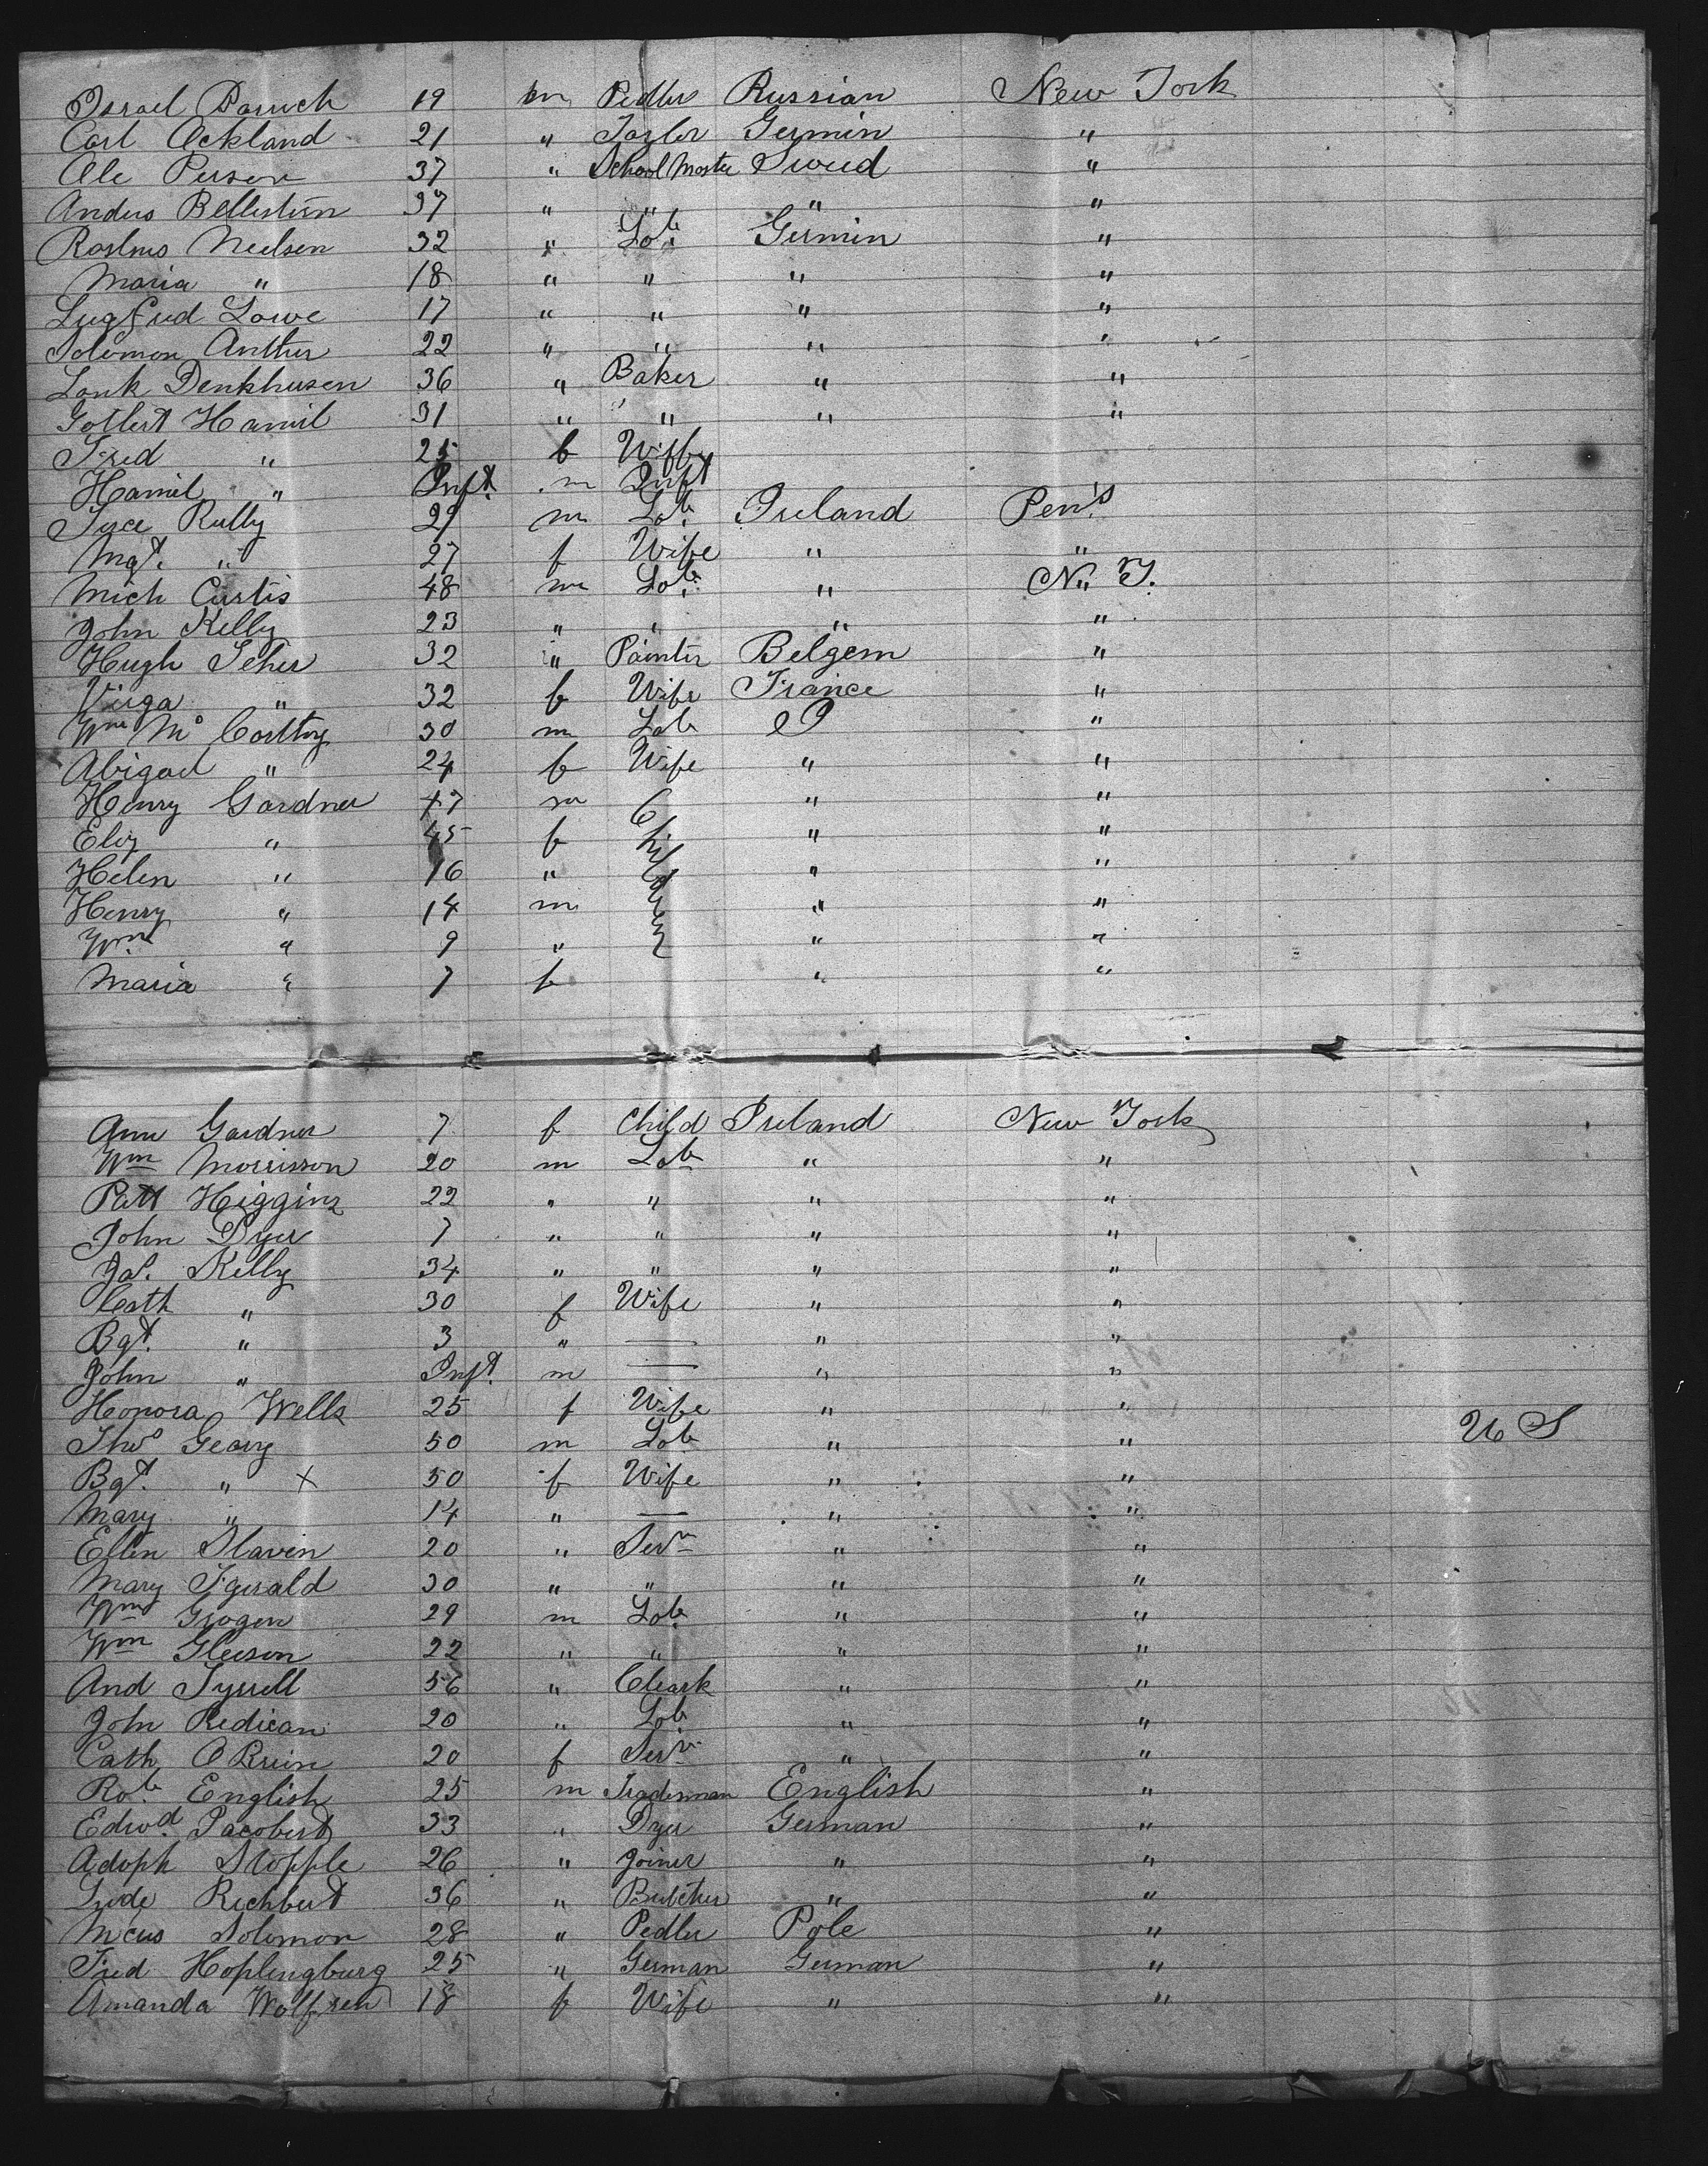 Israel Baruch 19 m Pedler Russian New York
Carl Ackland 21 " Taylor Germin "
Ole Person 37 " School Master Sweed "
Anders Bellestern 37 " " " "
Rasmus Neilsen 32 " Lab. Germin "
Maria " 18 " " " "
Lugfrid Lowe 17 " " " "
Solomon Anther 22 " " " "
Lonk Denkhusen 36 " Baker " "
Gotlert Hamil 31 " " " "
Fred " 25 f Wife
Hamil " Inft. m Inft
Rully 29 m Lab. Ireland Pen's
Mgt. " 27 f Wife " "
Mich Curtis 48 m Lab. " N. Y.
John Kelly 23 " " " "
Hugh Seher 32 " Painter Belgem "
Virga " 32 f Wife France "
Wm Mc Carthy 30 m Lab I "
Abigael " 24 f Wife " "
Henry Gardner 47 m Children " "
Eliz " 45 f " "
Helen " 16 " " "
Henry " 14 m " "
Wm " 9 " " "
Maria " 7 f " "
Ann Gardner 7 f Child Ireland New York
Wm Morrisson 20 m Lab " "
Patt Higgins 22 " " " "
John Dyer 7 " " " "
Jas. Kelly 34 " " " "
Cath " 30 f Wife " "
Bgt. " 3 " — " "
John " Inft. m — " "
Honora Wells 25 f Wife " "
Thos Geary 50 m Lab " " U S
Bgt. " x 50 f Wife " "
Mary " 14 " — " "
Ellen Slaven 20 " Serv " "
Mary Fgerald 30 " " " "
Wm Grogen 29 m Lab. " "
Wm Gleeson 22 " " " "
And Tyrrell 56 " Cleark " "
John Redican 20 " Lab. " "
Cath O Brein 20 f Serv " "
Rob. English 25 m Tradesman English "
Edwd. Jacobert 33 " Dyer German "
Adoph Stopple 26 " Joiner " "
Lude Richbert 36 " Butcher " "
Mcus Solomon 28 " Pedler Pole "
Fred Hoplengburg 25 " German German "
Amanda Wolfsen 18 f Wife " "